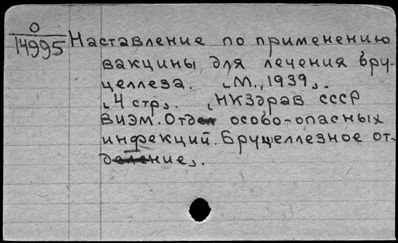 О
14995 Наставление по применению
вакцины для лечения бру-
целлеза. „М., 1939„.
„4 стр„. „НКЗдрав СССР
ВИЭМ. Отдел особо-опасных
инфекций. Бруцеллезное от-
деление„.